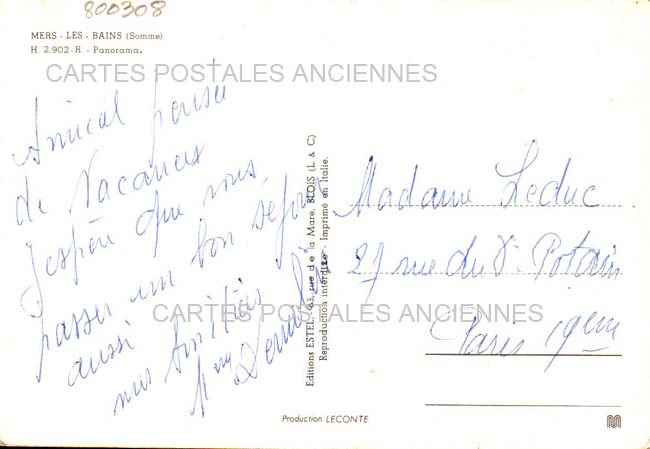 800308
MERS - LES - BAINS (Somme)
H. 2.902 - R. - Panorama.
CARTES POSTALES ANCIENNES
Amical pensée
de Vacances
J'espère que vous
passer un bon séjour
aussi
nos Amitiés
Mme
Editions ESTEL - 63, rue de la Mare, BLOIS (L. & C)
Reproduction interdite - Imprimé en Italie.
Madame Leduc
27 rue du Dr Potain
Paris 19em
CARTES POSTALES ANCIENNES
Production LECONTE